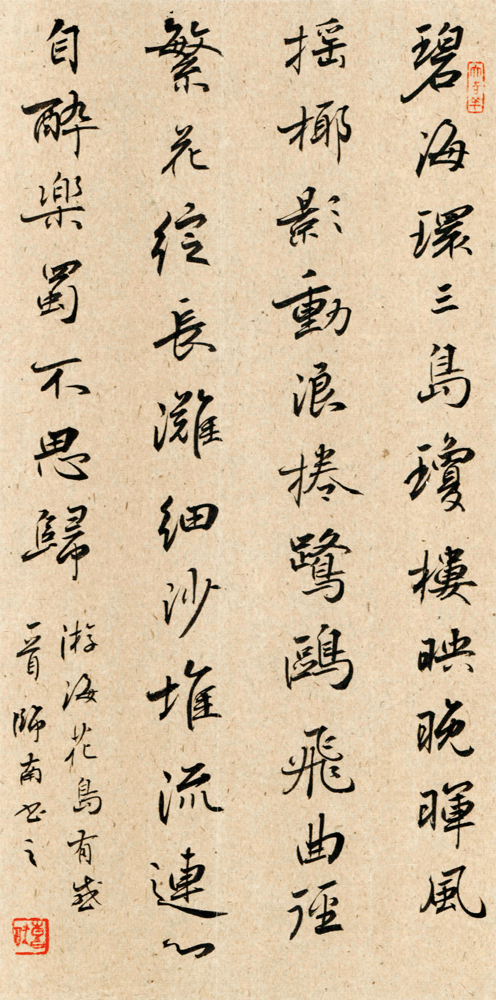 碧海環三島瓊樓映晚暉風
搖椰影動浪捲鷺鷗飛曲徑
繁花綻長灘細沙堆流連心
自醉樂蜀不思歸
游海花島有感
一首師南書之